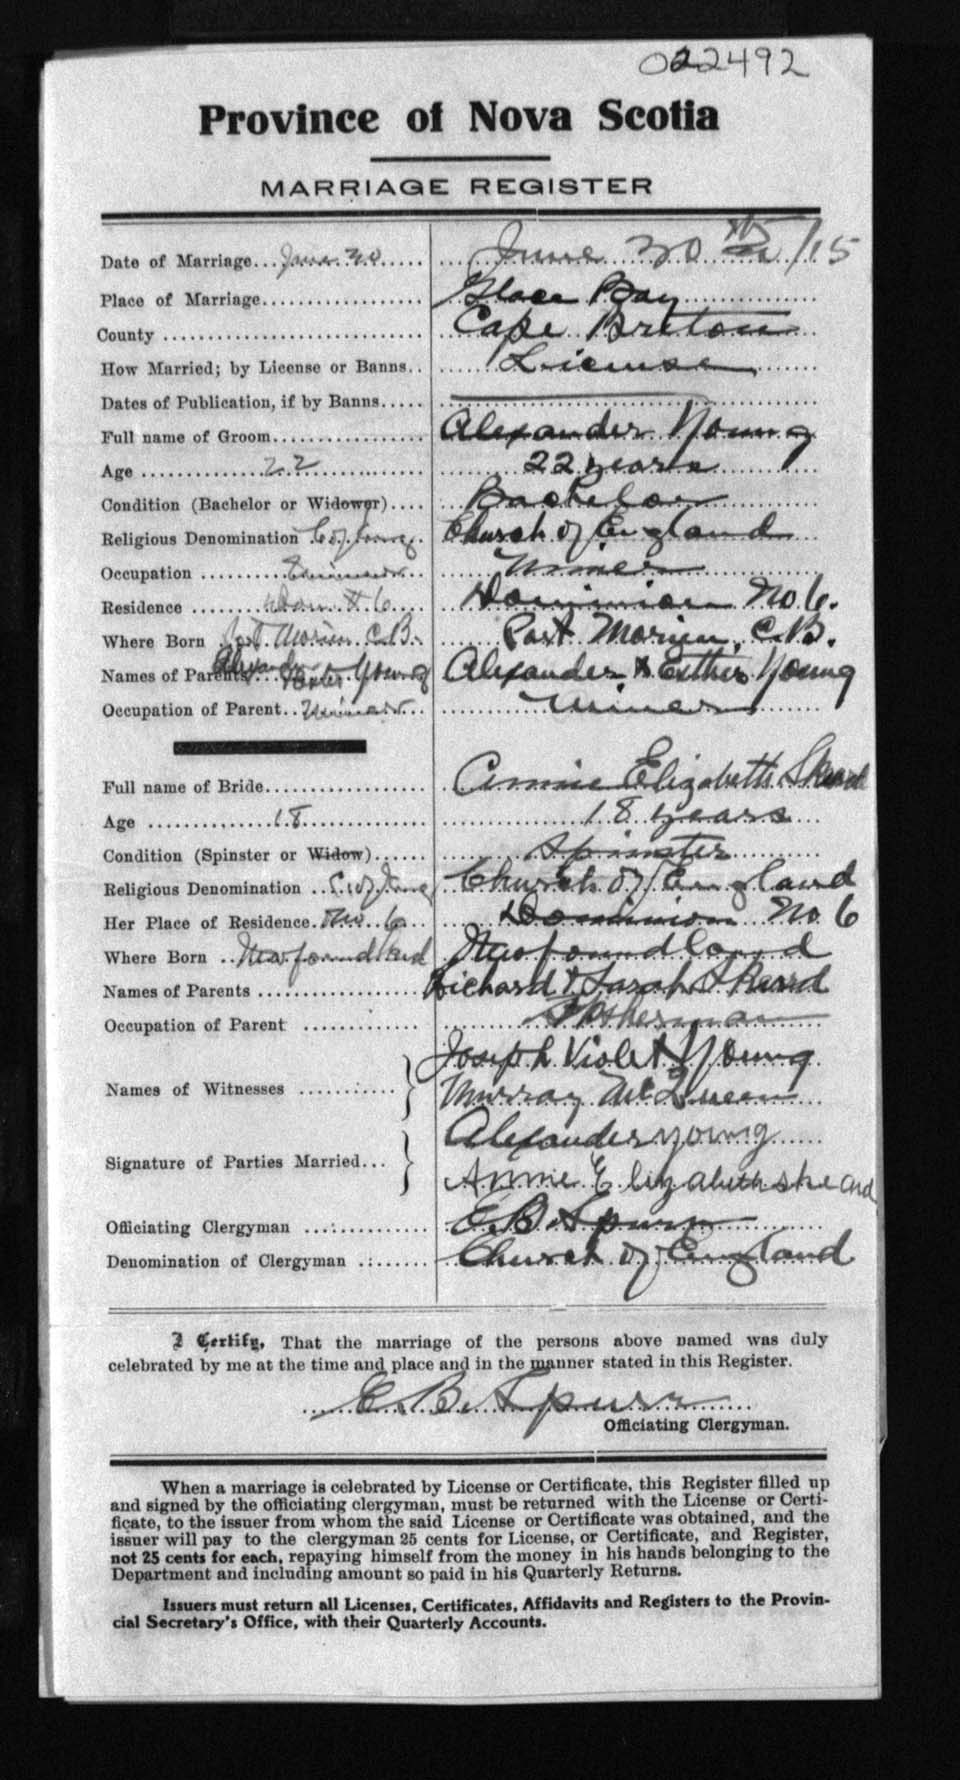 022492
Province of Nova Scotia
MARRIAGE REGISTER
Date of Marriage... June 30 ..... June 30th /15
Place of Marriage.................. Glace Bay
County ............................ Cape Breton
How Married; by License or Banns.. License
Dates of Publication, if by Banns.....
Full name of Groom................ Alexander Young
Age ........22............ 22 years
Condition (Bachelor or Widower).... Bachelor
Religious Denomination C of Eng. Church of England
Occupation ......... Miner
Residence ....... Dom # 6 Dominion No. 6.
Where Born Port Morien C.B. Port Morien, C.B.
Names of Parents.. Alexander Ester Young Alexander & Esther Young
Occupation of Parent.. Miner Miner
Full name of Bride................... Annie Elizabeth Skeard
Age ............18............ 18 years
Condition (Spinster or Widow)...... Spinster
Religious Denomination .. C. of Eng Church of England
Her Place of Residence. No. 6 Dominion No 6
Where Born .. Newfoundland Newfoundland
Names of Parents .................. Richard & Sarah Skeard
Occupation of Parent ............. Fisherman
Names of Witnesses ........... Joseph Violet Young
Murray McQueen
Signature of Parties Married... Alexander young
Annie Elizabeth skeard
Officiating Clergyman ............. E. B. Spurr
Denomination of Clergyman ........ Church of England
I Certify, That the marriage of the persons above named was duly
celebrated by me at the time and place and in the manner stated in this Register.
E. B. Spurr
Officiating Clergyman.
When a marriage is celebrated by License or Certificate, this Register filled up
and signed by the officiating clergyman, must be returned with the License or Certi-
ficate, to the issuer from whom the said License or Certificate was obtained, and the
issuer will pay to the clergyman 25 cents for License, or Certificate, and Register,
not 25 cents for each, repaying himself from the money in his hands belonging to the
Department and including amount so paid in his Quarterly Returns.
Issuers must return all Licenses, Certificates, Affidavits and Registers to the Provin-
cial Secretary's Office, with their Quarterly Accounts.